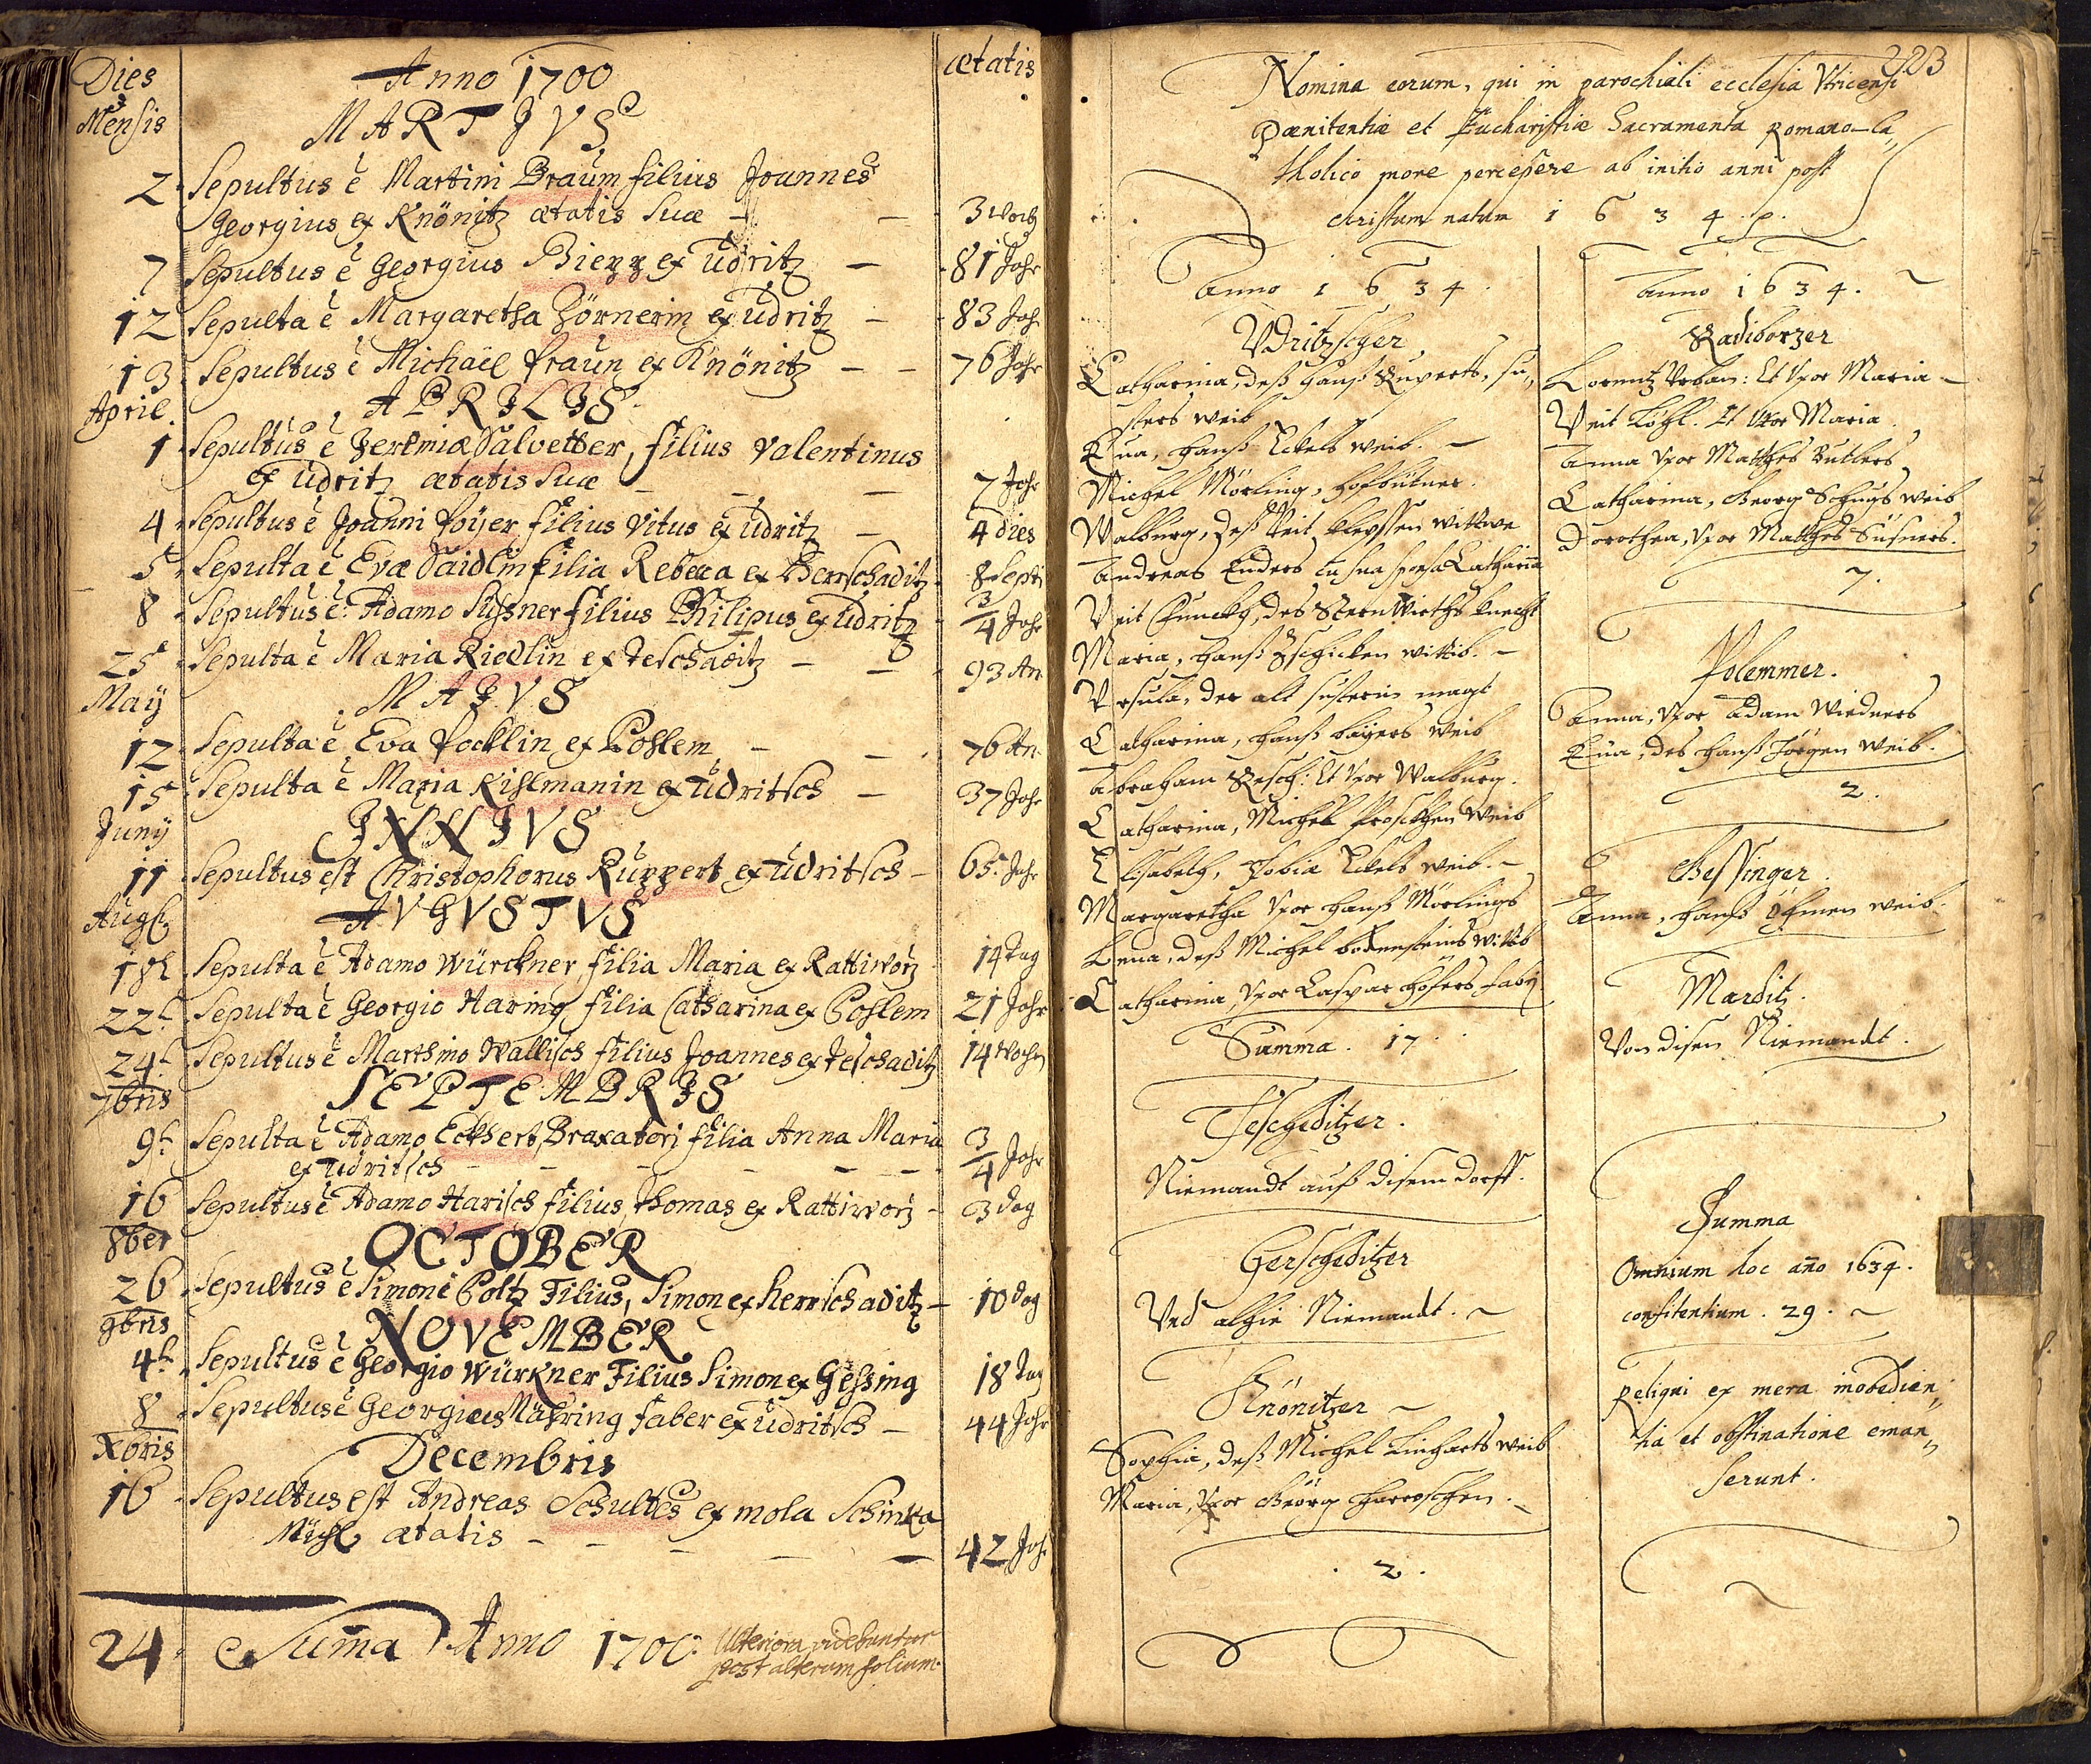 Dies
Mensis
Anno 1700
ætatis
MARTJVS
2 Sepultus ē Martini Braum filius Joannes
Georgius ex Knönitz ætatis Suæ — 3 woch
7 Sepultus ē Georgius Piezz ex Üdritz — 81 Jahr
12 Sepulta ē Margaretha Zörnerin ex Üdritz — 83 Jahr
13 Sepultus ē Michaël Praun ex Knönitz — — 76 Jahr
April. APRJLJS
1 Sepultus ē Jeremiæ Salvetter, filius Valentinus
ex Üdritz ætatis Suæ — — — 7 Jahr
4 Sepultus ē Joanni Poÿer filius Vitus ex Üdritz — 4 dies
5 Sepulta ē Evæ Saidlin filia Rebecca ex Herrschaditz 8 Septi
8 Sepultus ē Adamo Süssner filius Philipus ex Üdritz 3/4 Jahr
25 Sepulta ē Maria Riedlin ex Teschaditz — — 93 An
May MAJVS
12 Sepulta ē Eva Pecklin ex Pohlem — — 76 An
15 Sepulta ē Maria Kihlmanin ex Üdritsch — 37 Jahr
Junÿ JVNJVS
11 Sepultus est Christophorus Ruppert ex Üdritsch — 65 Jahr
Augst AVGVSTVS
18t Sepulta ē Adamo Würckner filia Maria ex Rattiworz 14 Tag
22t Sepulta ē Georgio Haring filia Catharina ex Pohlem 21 Jahr
24t Sepultus ē Marthino Wallisch filius Joannes ex Teschaditz 14 Wochn
7bris SEPTEMBRJS
9t Sepulta ē Adamo Eckhert Braxatori filia Anna Maria
ex Üdritsch — — — — — 3/4 Jahr
16 Sepultus ē Adamo Harisch filius, Thomas ex Rattiworz — 3 dag
8ber OCTOBER
26 Sepultus ē Simoni Poltz Filius, Simon ex Herrschaditz — 10 dag
9bris NOVEMBER
4t Sepultus ē Georgio Würkner Filius Simon ex Gessing 18 Tag
8 Sepultus ē Georgius Mähring faber ex Üdritsch — 44 Jahr
Xbris Decembris
16 Sepultus est Andreas Schultes ex mola Schinka
Mühl ætatis — — — — — 42 Jahr
24 Suma Anno 1700. Ulteriora videbuntur
post alterum folium.
223
Nomina eorum, qui in parochiali ecclesia Vtricensi
Pœnitentiæ et Eucharistiæ Sacramenta Romano-ca„
tholico more percepere ab initio anni post
Christum natum 1 6 3 4. p.
Anno 1 6 3 4.
Vdritzscher
Catharina, deß Hanß Ruperts, su„
sters weib
Eua, Hanß Eckels weib. —
Michel Mörling, Hofbütner.
Walburg, deß Veit wittwe
Andreas Enders cu sua sponsa Catharina
Veit des Steen Wirths Knecht
Maria, Hanß Zschicken wittib. —
Vrsula, der alt susterin magt
Catharina, Hanß baÿers weib
Abraham Resch: Et Vxor Walburg.
Catharina, Michel weib
Elisabeth, Tobiæ Eckels weib. —
Margaretha Vxor Hanß Mörlings
Lena, deß Michel bodensteins wittib
Catharina, Vxor Caspar Hofers fabri
Summa. 17.
Tescheditzer.
Niemandt auß disem dorff.
Gerscheditzer
Vnd alhie Niemandt. —
Knönitzer —
Sophia, deß Michel Linharts weib
Maria, Vxor Geörg
2.
Anno 1634.
Radiborzer
Lorentz Urban: Et Vxor Maria —
Veit Et Vxor Maria.
Anna Vxor Matthes Butlers
Catharina, Georg weib
Dorothea, Vxor Matthes Süsners.
7.
Polemmer.
Anna, Vxor Adam Wirdners
Eua, des Hanß Jörgen weib.
2.
Gessinger.
Anna, Hanß weib.
Marditz.
Von disen Niemandt.
Summa
Omnium hoc año 1634.
confitentium. 29. —
Reliqui ex mera inobedien„
tia et obstinatione eman„
serunt.